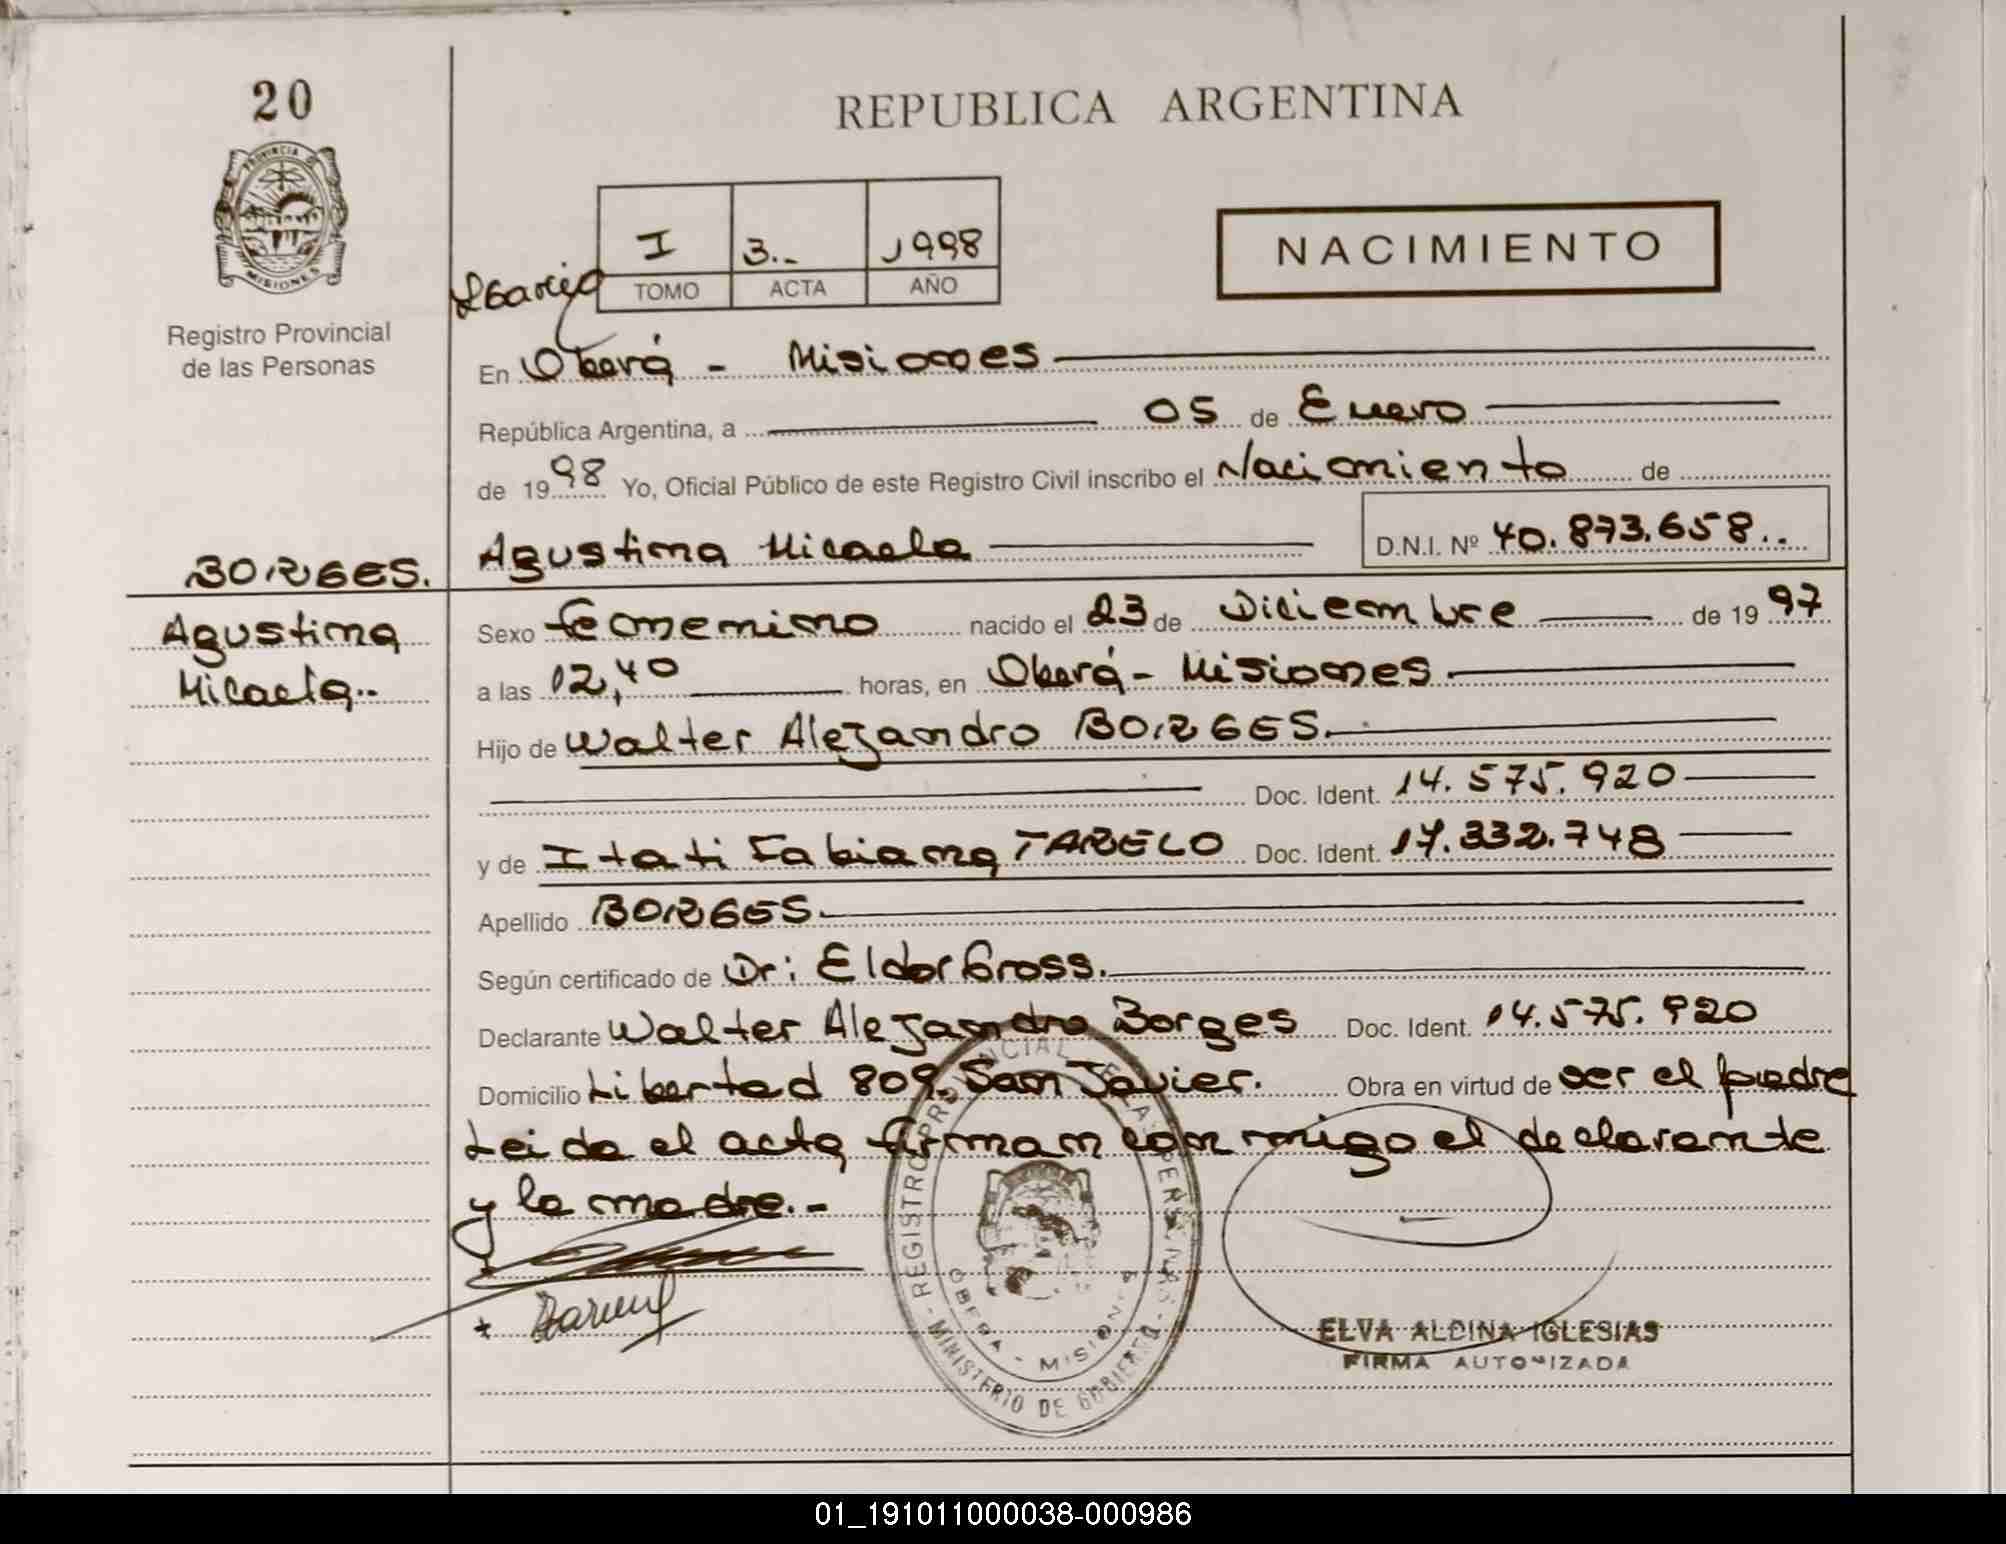 20
REPUBLICA ARGENTINA
PROVINCIA DE
MISIONES
Registro Provincial
de las Personas
I 3.- 1998
TOMO ACTA AÑO
NACIMIENTO
En Oberá - Misiones
República Argentina, a 05 de Enero
de 1998 Yo, Oficial Público de este Registro Civil inscribo el Nacimiento de
Agustina Micaela D.N.I. Nº 40.873.658..
BORGES.
Agustina
Micaela..
Sexo femenino nacido el 23 de Diciembre de 1997
a las 12,40 horas, en Oberá - Misiones
Hijo de Walter Alejandro BORGES.
Doc. Ident. 14.575.920
y de Itati Fabiana TARELO Doc. Ident. 17.332.748
Apellido BORGES.
Según certificado de Dr: Eldor Gross.
Declarante Walter Alejandro Borges Doc. Ident. 14.575.920
Domicilio Libertad 809. San Javier. Obra en virtud de ser el padre
Leida el acta, firman conmigo el declarante
y la madre.-
REGISTRO PROVINCIAL DE LAS PERSONAS - MINISTERIO DE GOBIERNO -
OBERA - MISIONES
ELVA ALDINA IGLESIAS
FIRMA AUTORIZADA
01_191011000038-000986